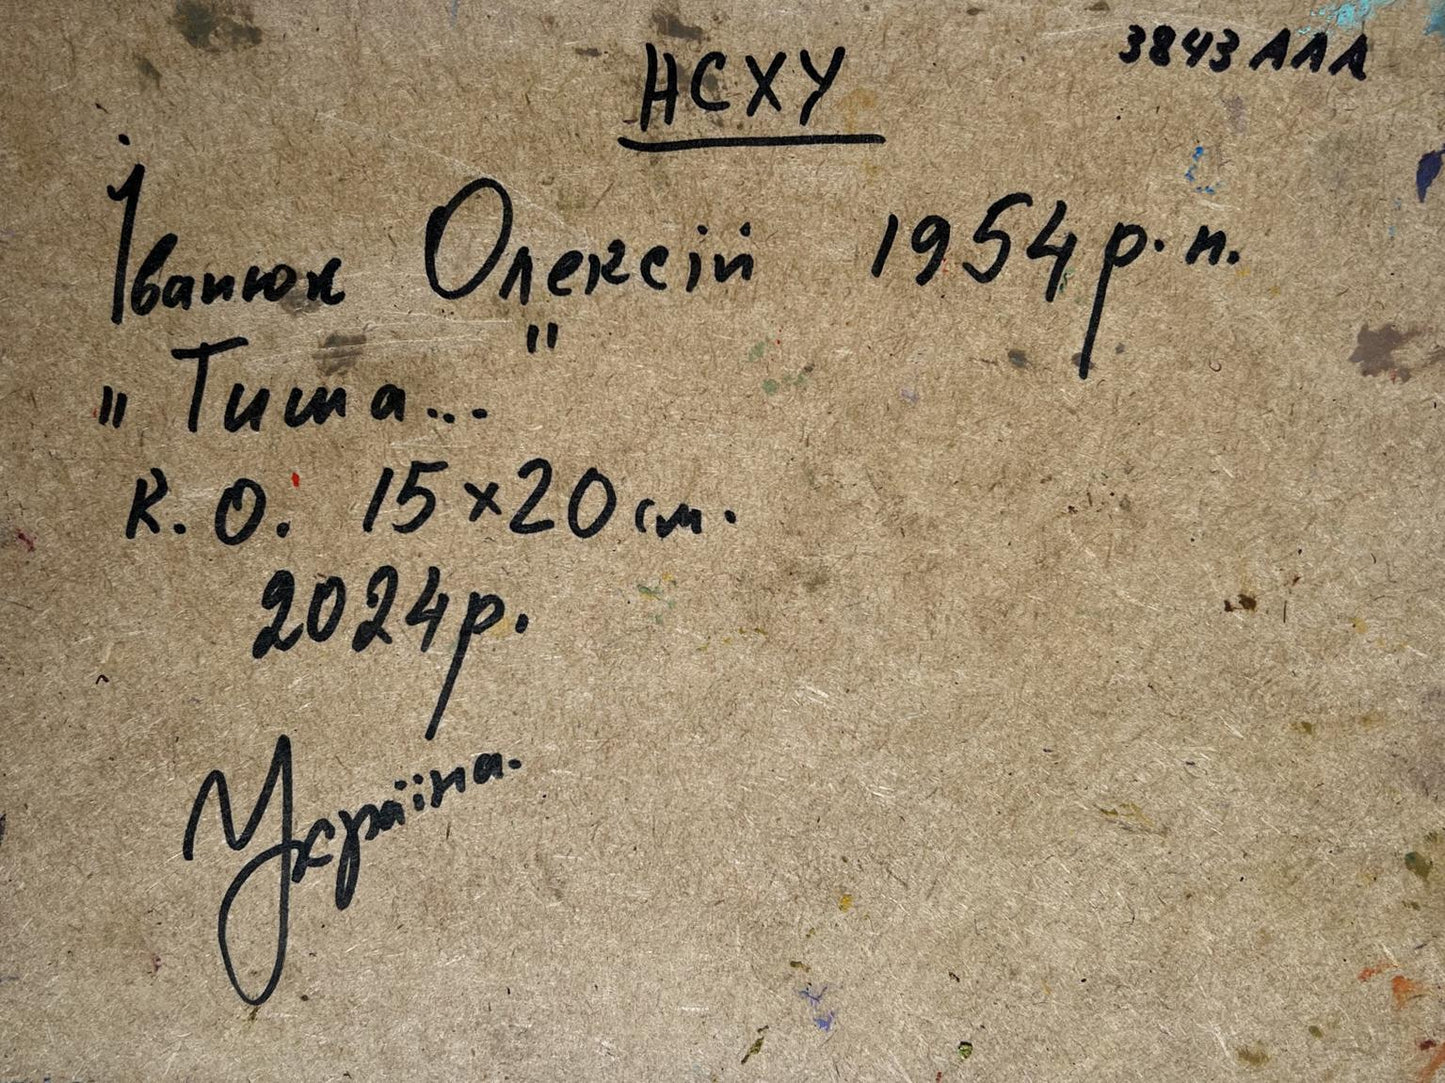 3843 ААА
НСХУ
Іванюк Олексій 1954 р.н.
"Тиша..."
К.О. 15×20 см.
2024р.
Україна.